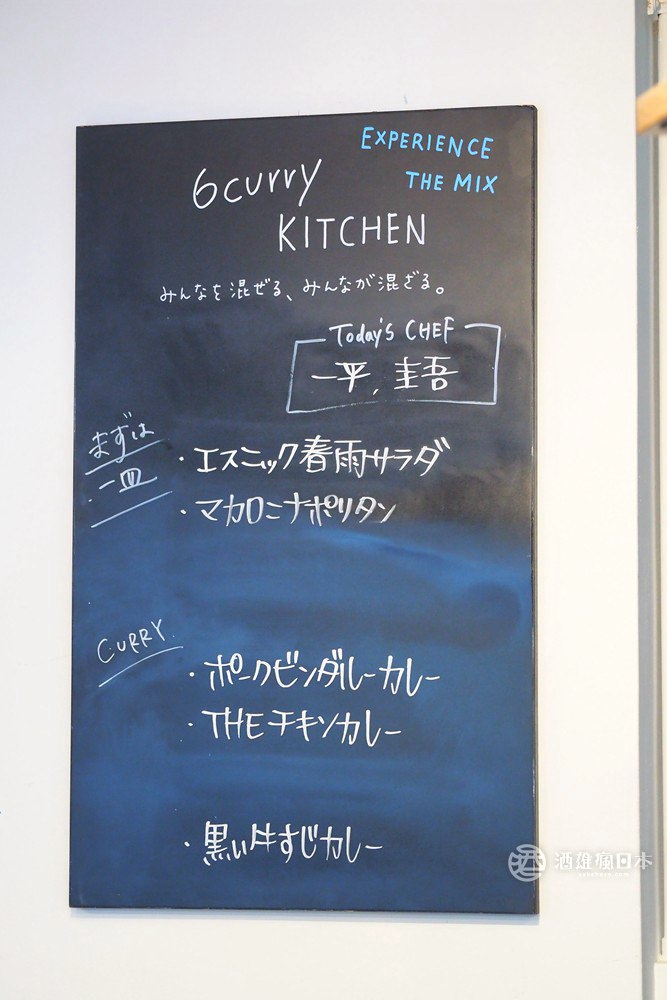 EXPERIENCE
THE MIX
6curry
KITCHEN
みんなを混ぜる、みんなが混ざる。
Today's CHEF
一平, 圭吾
まずは
一皿
・エスニック春雨サラダ
・マカロニナポリタン
CURRY
・ポークビンダルーカレー
・THEチキンカレー
・黒い牛すじカレー
酒雄瘋日本